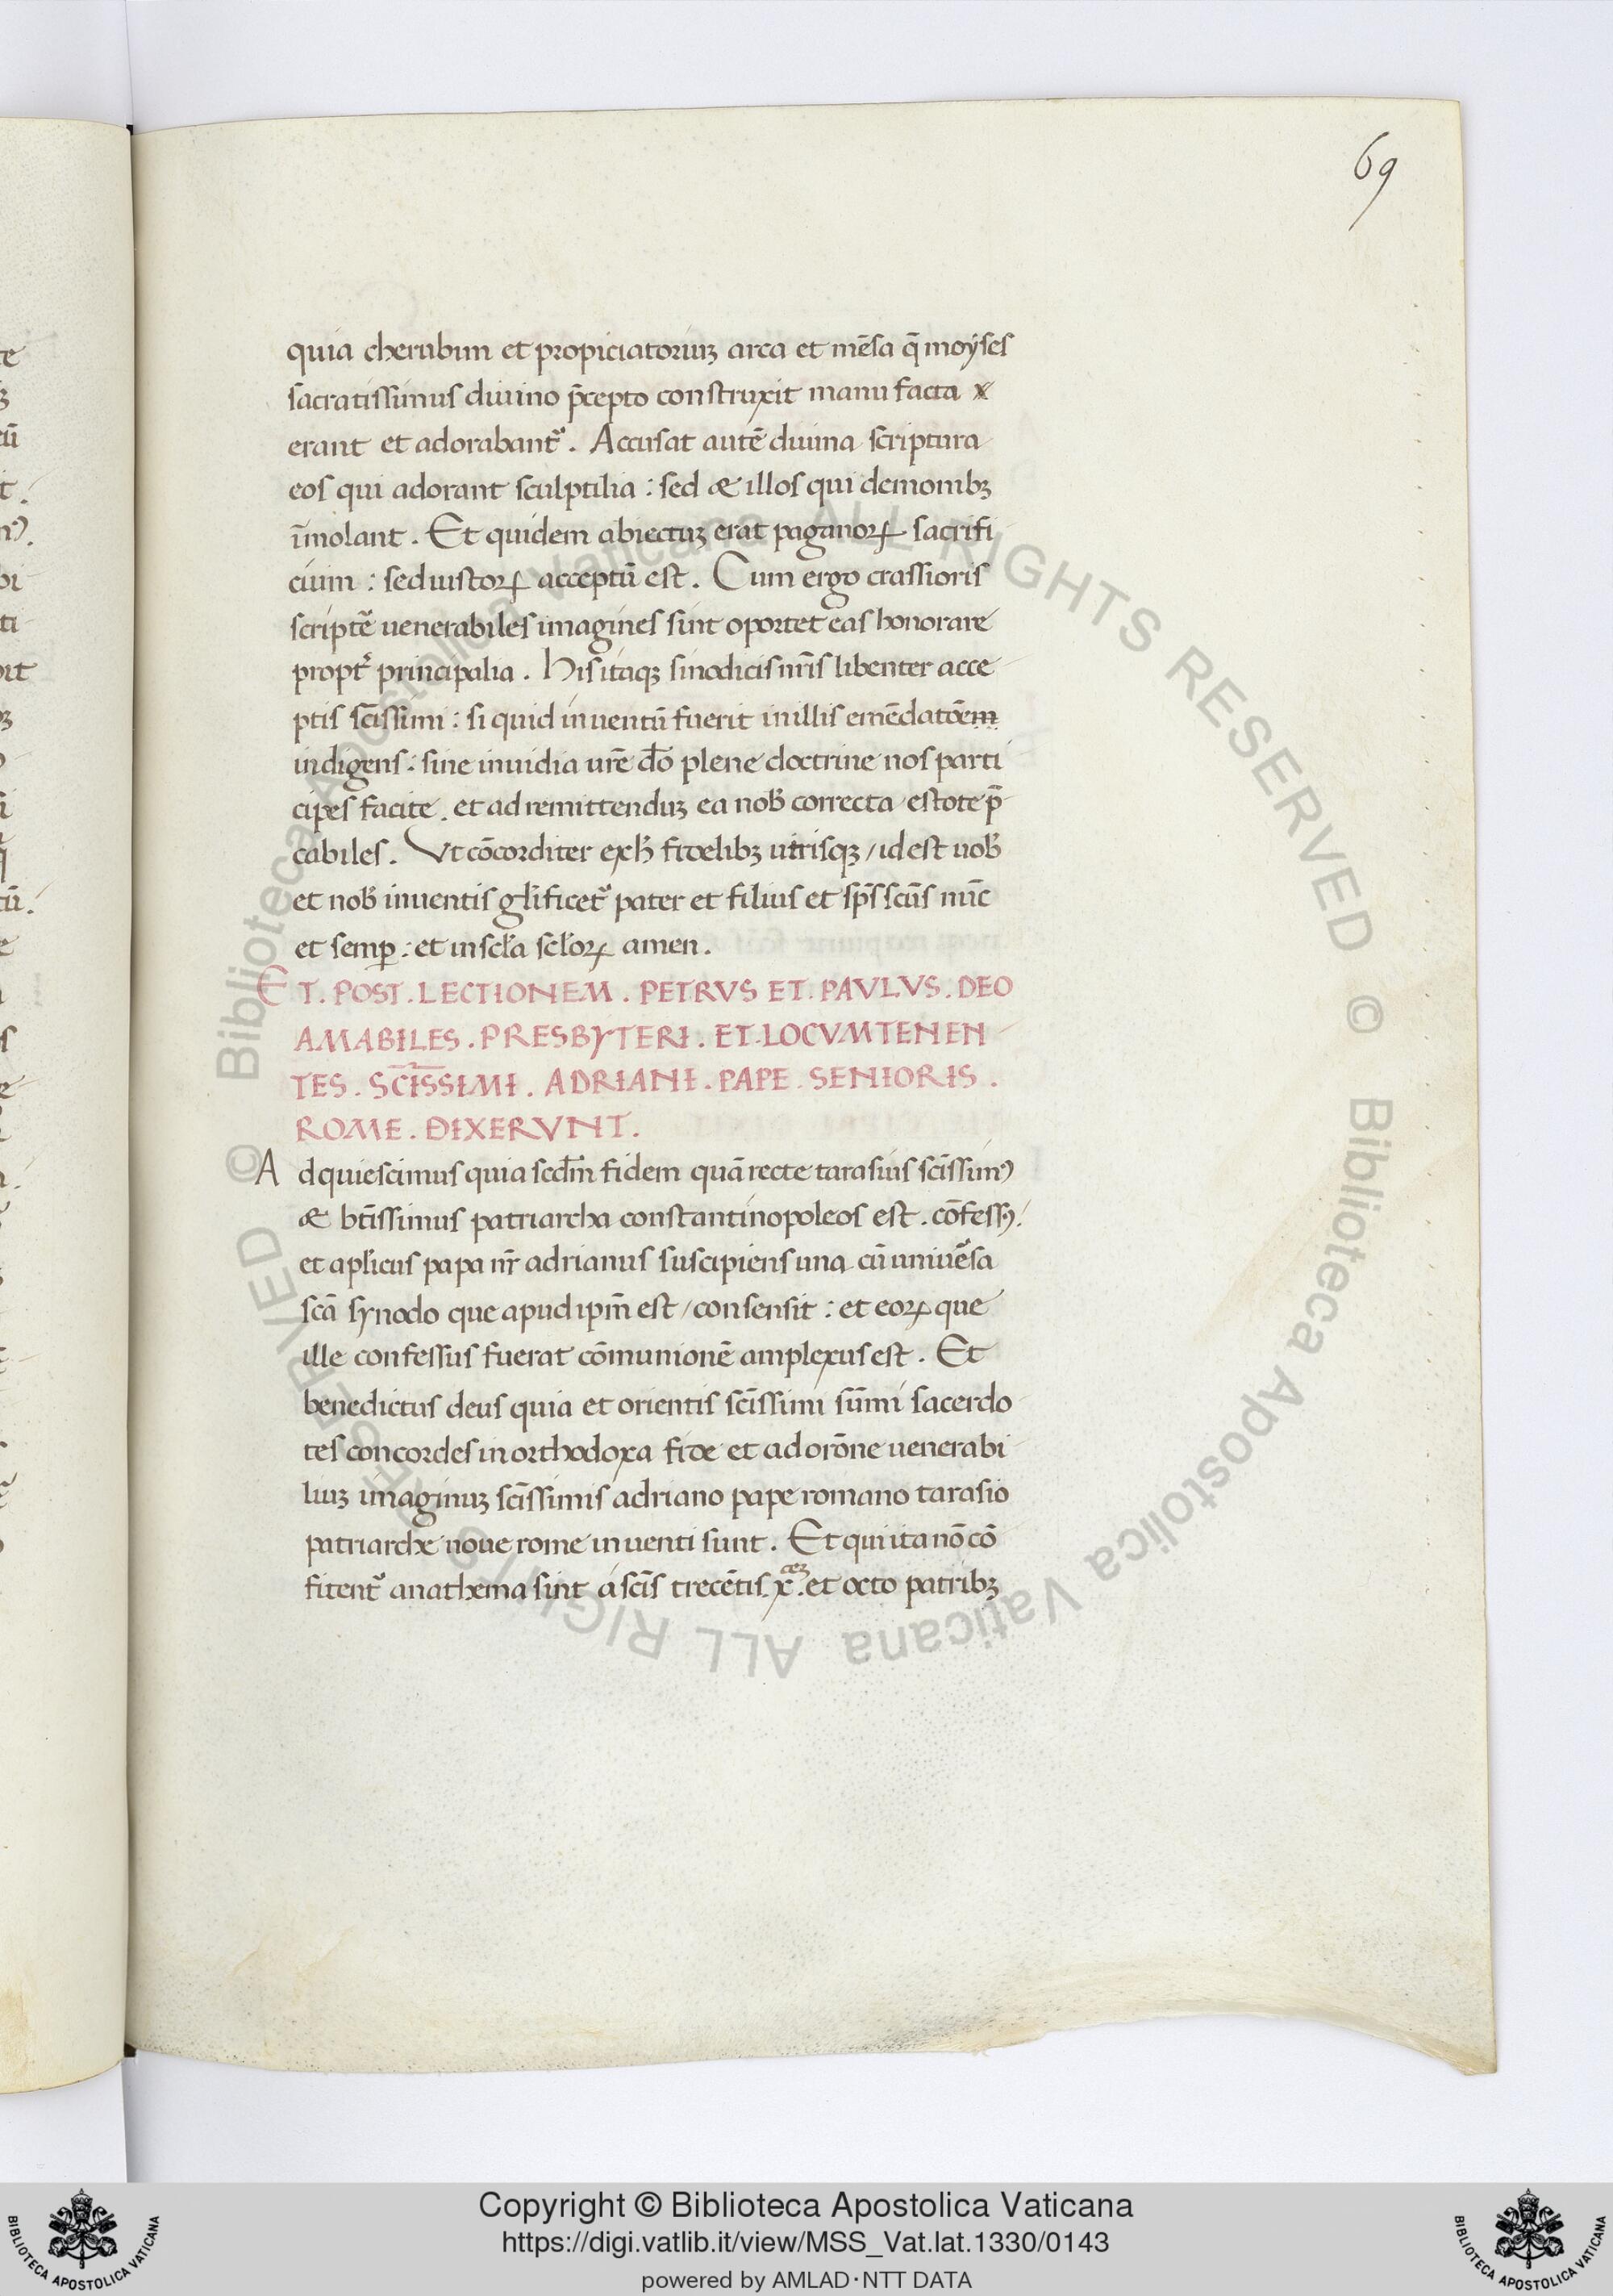 69
quia cherubim et propiciatoriuꝫ arca et mēsa q̄ moẏses
sacratissimus diuino p̄cepto construxit manu facta
erant et adorabantᷣ. Accusat autē diuina scriptura
eos qui adorant sculptilia : sed & illos qui demonibꝫ
īmolant. Et quidem abiectuꝫ erat paganoꝝ sacrifi
cium : sed iustoꝝ acceptū est. Cum ergo crassioris
scriptē uenerabiles imagines sint oportet eas honorare
propt᷑ principalia. His itaqꝫ sinodicis nr̄is libenter acce
ptis sc̄issimi : si quid inuentū fuerit in illis emēdatōem
indigens : sine inuidia ur̄e do̅ plene doctrine nos parti
cipes facite. et ad remittenduꝫ ea nob̕ correcta estote p̄
cabiles. Vt cōcorditer fidelibꝫ utrisqꝫ / id est uob̕
et nob̕ inuentis gl̕ificetᷣ pater et filius et sp̄s sc̄us nūc
et semꝑ : et in scl̕a scl̕oꝝ amen.
ET. POST. LECTIONEM. PETRVS ET. PAVLVS. DEO
AMABILES. PRESBYTERI. ET. LOCVMTENEN
TES. SC̅ISSIMI. ADRIANI. PAPE. SENIORIS.
ROME. DIXERVNT.
Adquiescimus quia scd̄m fidem quā recte tarasius sc̄issimꝰ
& bt̄issimus patriarcha constantinopoleos est. cōfessꝰ.
et apl̕icus papa nr̄ adrianus suscipiens una cū uniuẽsa
sc̄a synodo que apud ipm̄ est / consensit : et eoꝝ que
ille confessus fuerat cōmunionē amplexus est. Et
benedictus deus quia et orientis sc̄issimi sūmi sacerdo
tes concordes in orthodoxa fide et adorōne uenerabi
liuꝫ imaginuꝫ sc̄issimis adriano pape romano tarasio
patriarche noue rome inuenti sunt. Et qui ita nō cō
fitentᷣ anathema sint a sc̄is trecētis. x. et octo patribꝫ
© Biblioteca Apostolica Vaticana ALL RIGHTS RESERVED © Biblioteca Apostolica Vaticana ALL RIGHTS RESERVED
Copyright © Biblioteca Apostolica Vaticana
https://digi.vatlib.it/view/MSS_Vat.lat.1330/0143
powered by AMLAD·NTT DATA
BIBLIOTECA APOSTOLICA VATICANA
BIBLIOTECA APOSTOLICA VATICANA